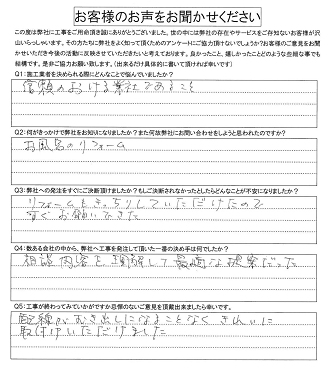 お客様のお声をお聞かせください
この度は弊社に工事をご用命頂き誠にありがとうございました。世の中には弊社の存在やサービスをご存知ないお客様が沢
山いらっしゃいます。その方たちに弊社をよく知って頂くためのアンケートにご協力頂けないでしょうか?お客様のご意見をお聞
かせいただき今後の活動に反映させていただきたいと考えております。良かったこと、嬉しかったことのような些細な事でも
結構です。是非ご協力お願い致します。(出来るだけ具体的に書いて頂ければ幸いです)
Q1:施工業者を決められる際にどんなことで悩んでいましたか?
信頼のおける業社であること
Q2:何がきっかけで弊社をお知りになりましたか?また何故弊社にお問い合わせをしようと思われたのですか?
お風呂のリフォーム
Q3:弊社への発注をすぐにご決断頂けましたか?もしご決断されなかったとしたらどんなことが不安になりましたか?
リフォームもきっちりしていただけたので
すぐお願いできた
Q4:数ある会社の中から、弊社へ工事を発注して頂いた一番の決め手は何でしたか?
相談内容を理解して最適な提案だった
Q5:工事が終わってみていかがですか忌憚のないご意見を頂戴出来ましたら幸いです。
配線がむき出しになることなくきれいに
取付けいただけました